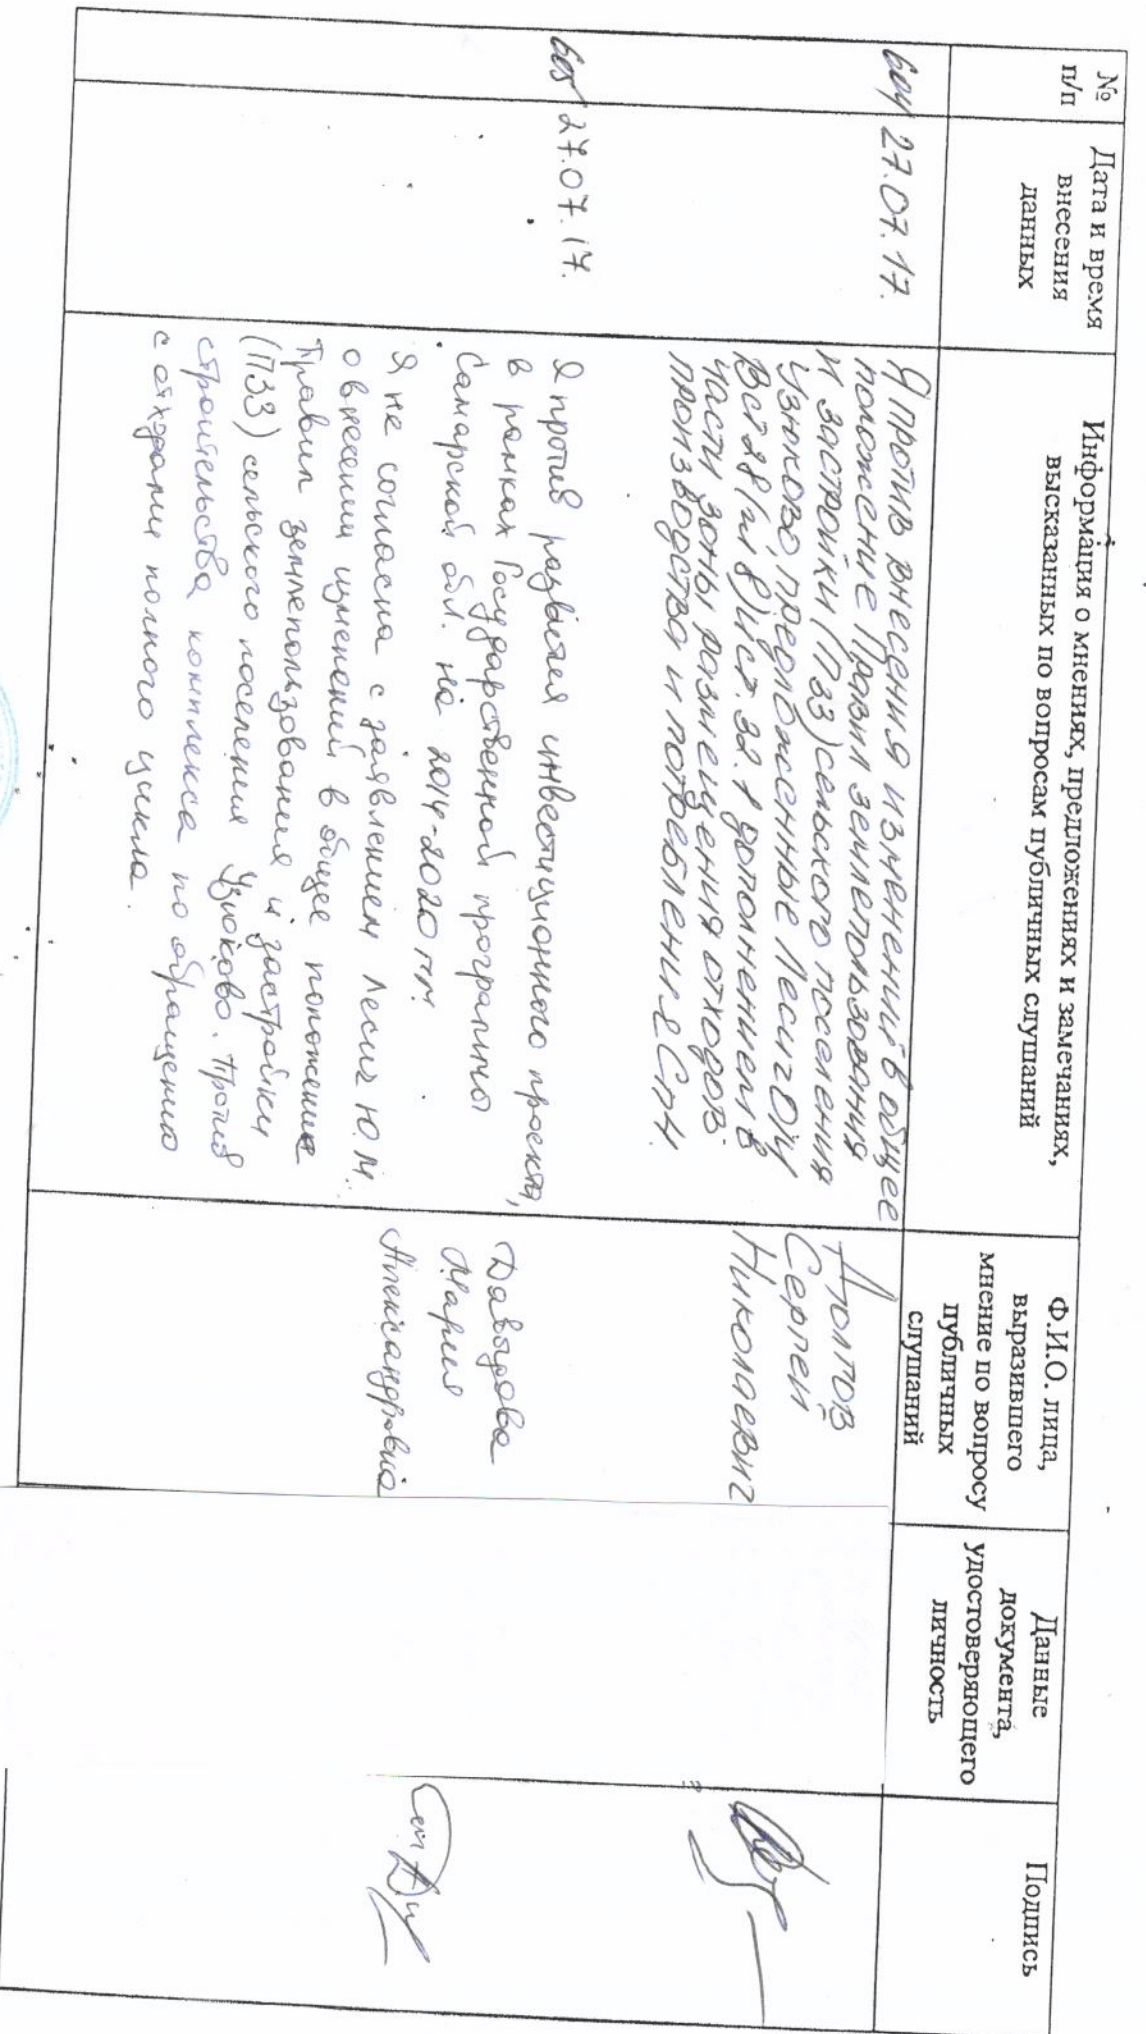 №
п/п
Дата и время
внесения
данных
Информация о мнениях, предложениях и замечаниях,
высказанных по вопросам публичных слушаний
Ф.И.О. лица,
выразившего
мнение по вопросу
публичных
слушаний
Данные
документа,
удостоверяющего
личность
Подпись
604
27.07.17.
Я против внесения изменений в общее
положение Правил землепользования
и застройки (ПЗЗ) сельского поселения
Узюково, предложенные Лесиг ЮМ
В ст 28 (п 8) и ст. 32.1 дополнением в
части зоны размещения отходов
производства и потребления Сп4.
Сергеи
Николаевич
605
27.07.17.
Я против развития инвестиционного проекта,
в рамках Государственной программы
Самарской обл. на 2014-2020 гг.
Я не согласна с заявлением Лесиг Ю.М.
о внесении изменений в общее положение
Правил землепользования и застройки
(ПЗЗ) сельского поселения Узюково. Против
строительства комплекса по обращению
с отходами полного цикла.
Давыдова
Мария
Александровна